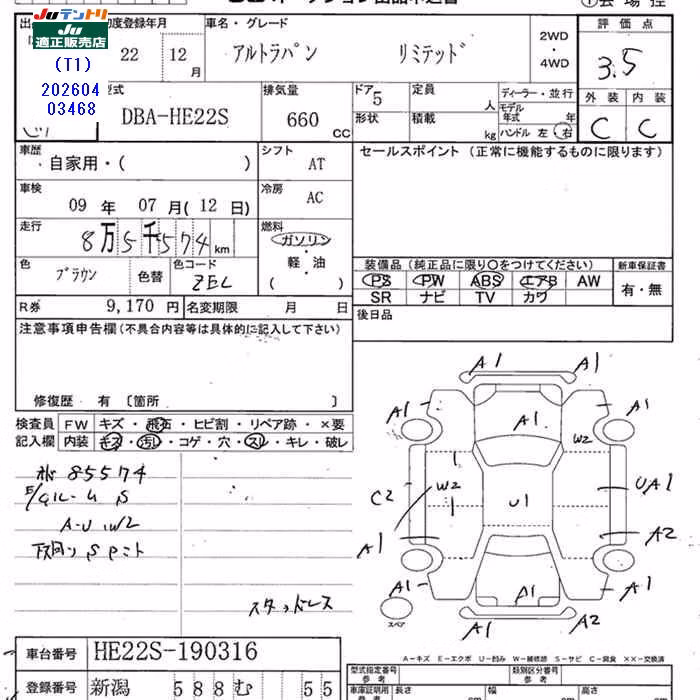 Juテントリ
JU 適正販売店
(T1)
202604
03468
初度登録年月 車名・グレード 評価点
22 12月 アルトラパン リミテッド 2WD・4WD 3.5
外装 内装
C C
型式 排気量 ドア 定員 ディーラー・並行
DBA-HE22S 660cc 5 人 モデル年式 年
形状 積載 kg ハンドル 左・右
車歴 自家用・( ) シフト AT セールスポイント (正常に機能するものに限ります)
車検 09年 07月(12日) 冷房 AC
走行 8万5千574km 燃料 ガソリン・軽・油 ( )
色 ブラウン 色替 色コード ZEL
装備品 (純正品に限り〇をつけてください) 新車保証書
PS PW ABS エアB AW 有・無
SR ナビ TV カワ
R券 9,170円 名変期限 月 日 後日品
注意事項申告欄(不具合内容等は具体的に記入して下さい)
修復歴 有 〔箇所 〕
検査員 FW キズ・飛石・ヒビ割・リペア跡・×要
記入欄 内装 キズ・汚れ・コゲ・穴・スレ・キレ・破レ
85574
A-U W2
スタッドレス
A1 A1
A1 A1 A1
W2
C2 W2 U1 UA1
A1 A2
A1 A1 A1
A2
スペア
A-キズ E-エクボ U-凹み W-補修跡 S-サビ C-腐食 ××-交換済
車台番号 HE22S-190316
登録番号 新潟 588 む 55
型式指定番号 参考 類別区分番号 参考
車庫証明用 長さ 幅 高さ